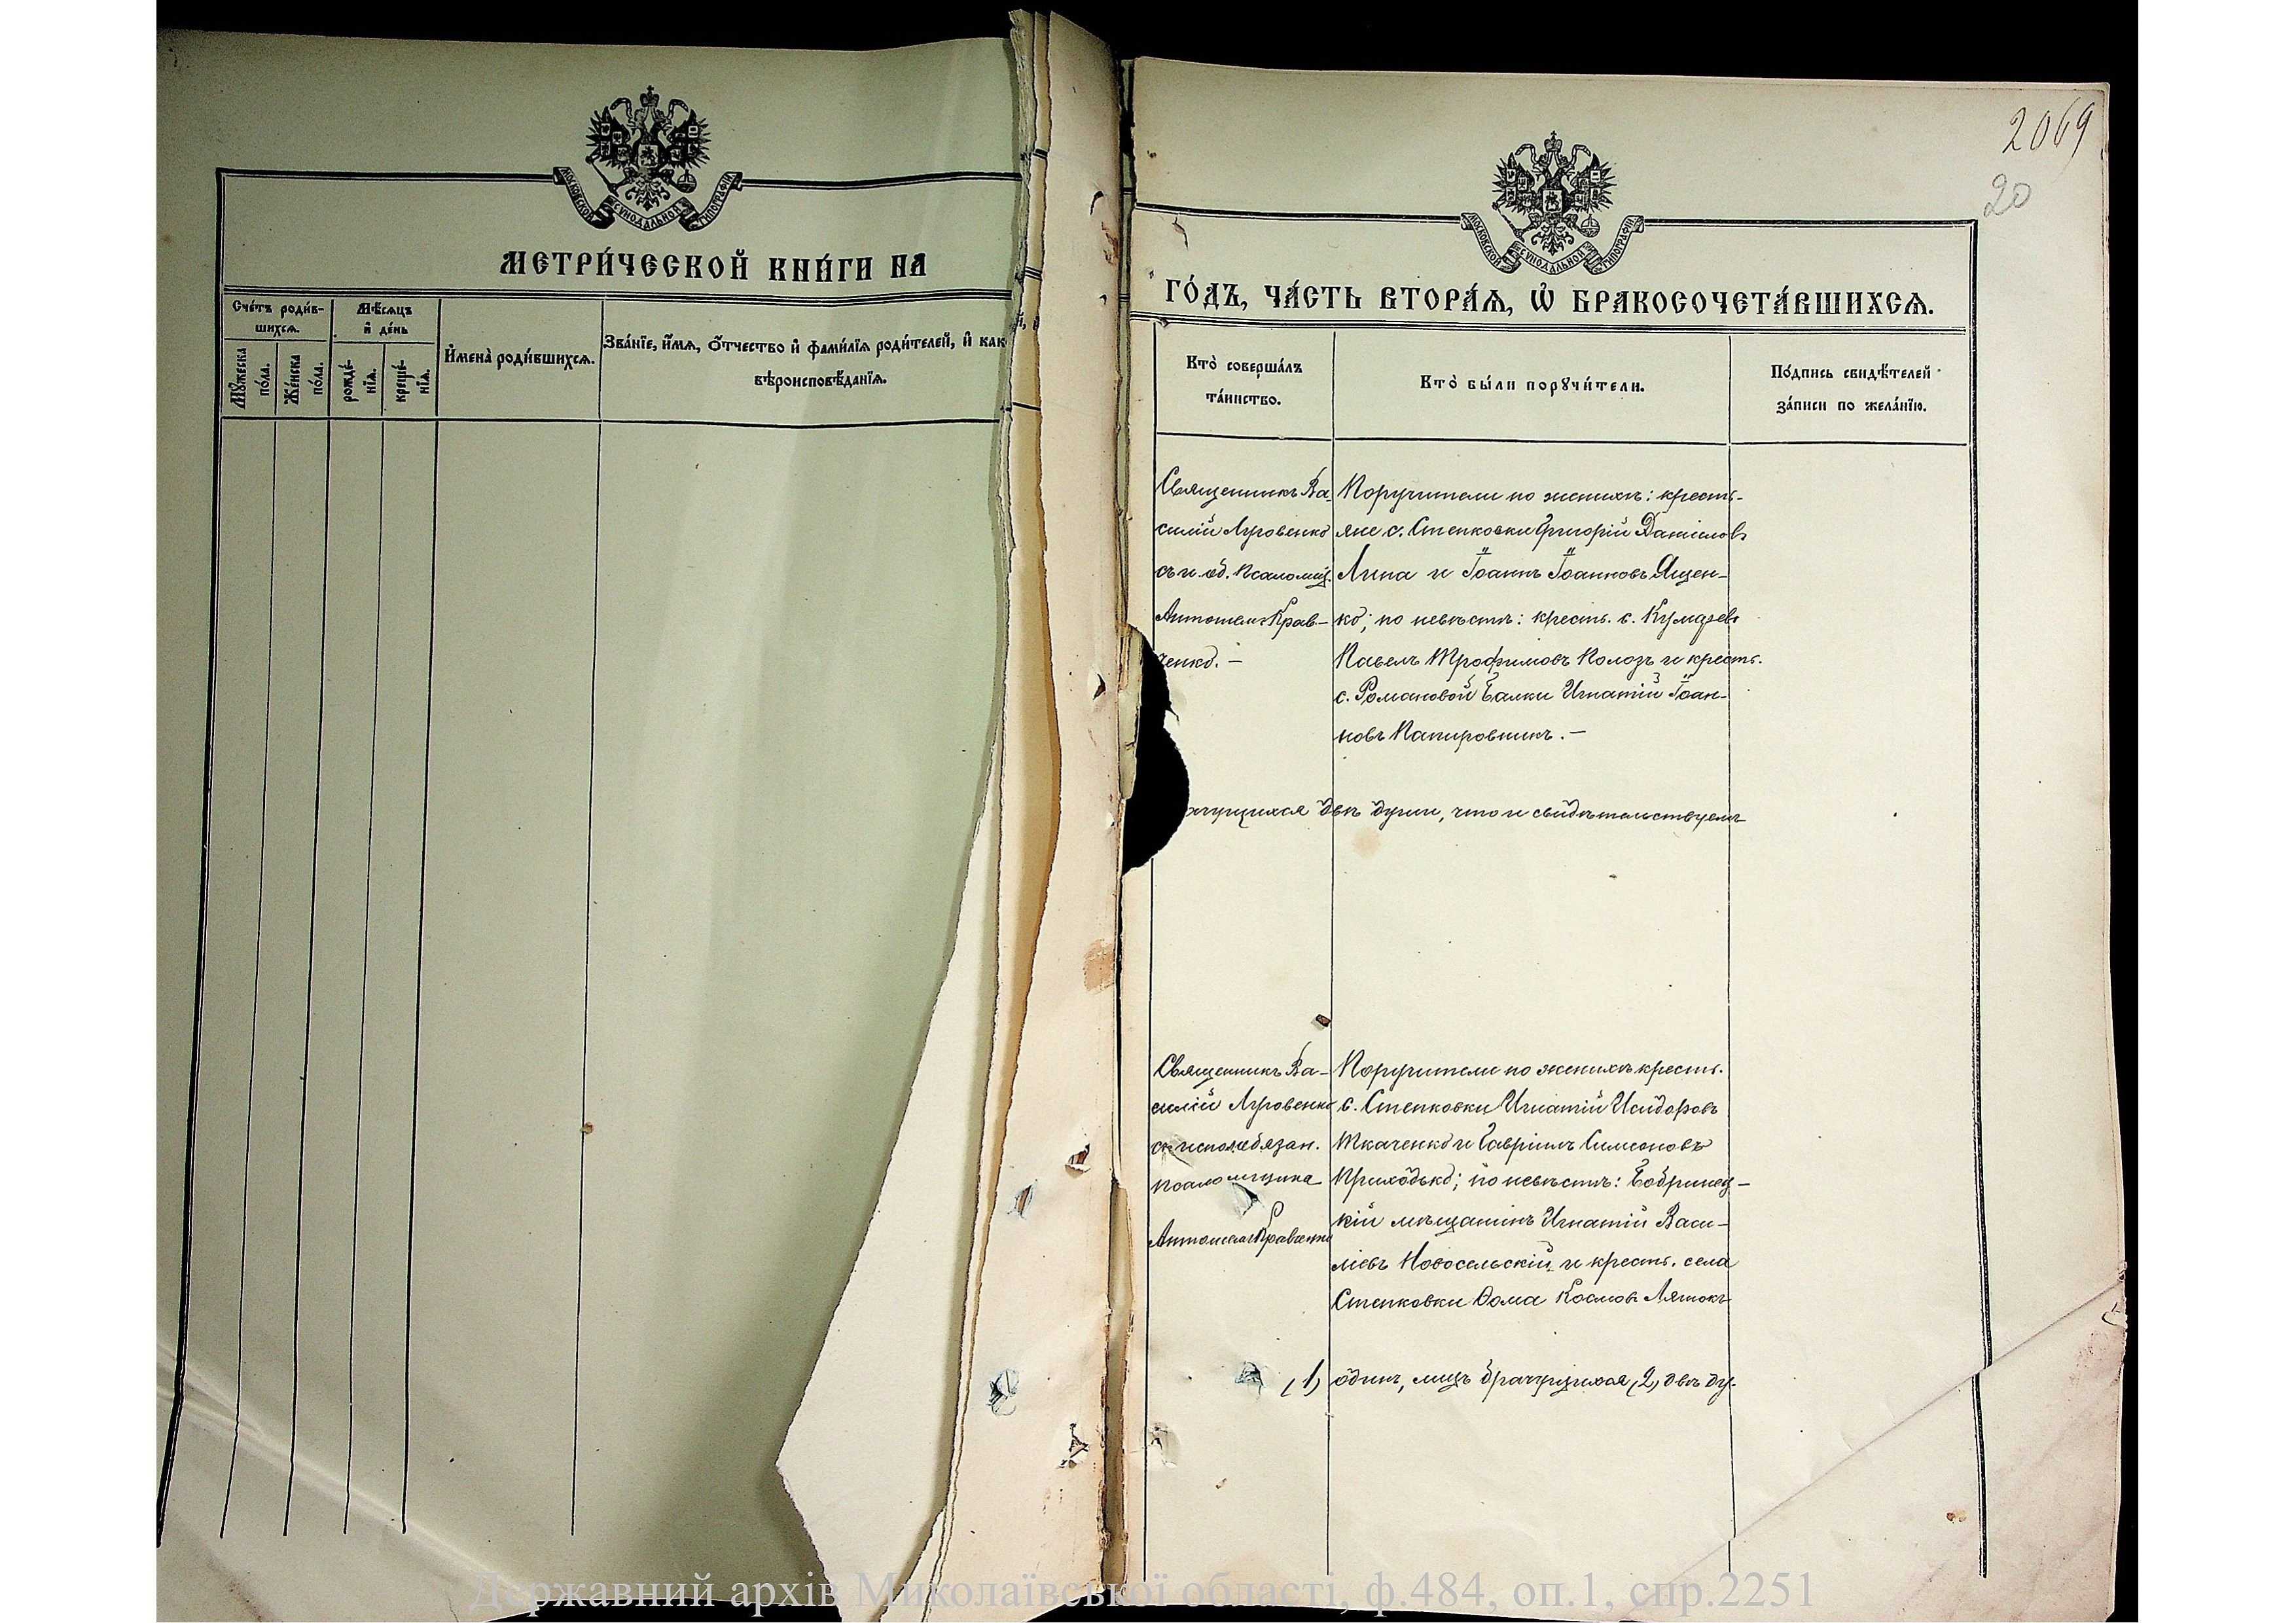 МОСКОВСКОЙ СУНОДАЛЬНОЙ ТИПОГРАФІИ
МЕТРИ́ЧЕСКОЙ КНИ́ГИ НА
Сче́тъ роди́в-
шихсѧ.
Мѣ́сѧцъ
и҆ де́нь
Мꙋ́жеска
по́ла.
Же́нска
по́ла.
рожде́-
нїѧ.
креще́-
нїѧ.
И҆мена̀ роди́вшихсѧ.
Зва́нїе, и҆́мѧ, ѻ҆́тчество и҆ фами́лїѧ роди́телей, и҆ как
вѣроисповѣ́данїѧ.
2069
20
МОСКОВСКОЙ СУНОДАЛЬНОЙ ТИПОГРАФІИ
ГО́ДЪ, ЧА́СТЬ ВТОРА́Ѧ, Ѡ҆ БРАКОСОЧЕТА́ВШИХСѦ.
Кто̀ соверша́лъ
та́инство.
Кто̀ бы́ли порꙋчи́тели.
По́дпись свидѣ́телей
за́писи по жела́нїю.
Священникъ Ва-
силій Луговенко
съ и. об. псаломщ.
Антоніемъ Крав-
ченко. –
Поручители по женихѣ: кресть-
яне с. Степковки Григорій Даніиловъ
Липа и Іоаннъ Іоанновъ Ящен-
ко; по невѣстѣ: кресть. с.
Павелъ Трофимовъ Полозъ и кресть.
с. Романовой Балки Игнатій Іоан-
новъ Папировникъ. –
ачущихся двѣ души, что и свидѣтельствуемъ
Священникъ Ва-
силій Луговенко
съ испол. обязан.
псаломщика
Антоніемъ Кравченко
Поручители по женихѣ кресть.
с. Степковки Игнатій Исидоровъ
Ткаченко и Гавріилъ Симеоновъ
Приходько; по невѣстѣ: Бобринец-
кій мѣщанинъ Игнатій Васи-
ліевъ Новосельскій и кресть. села
Степковки Ѳома Космовъ
(1) одинъ, лицъ брачущихся (2) двѣ ду-
Державний архів Миколаївської області, ф.484, оп.1, спр.2251